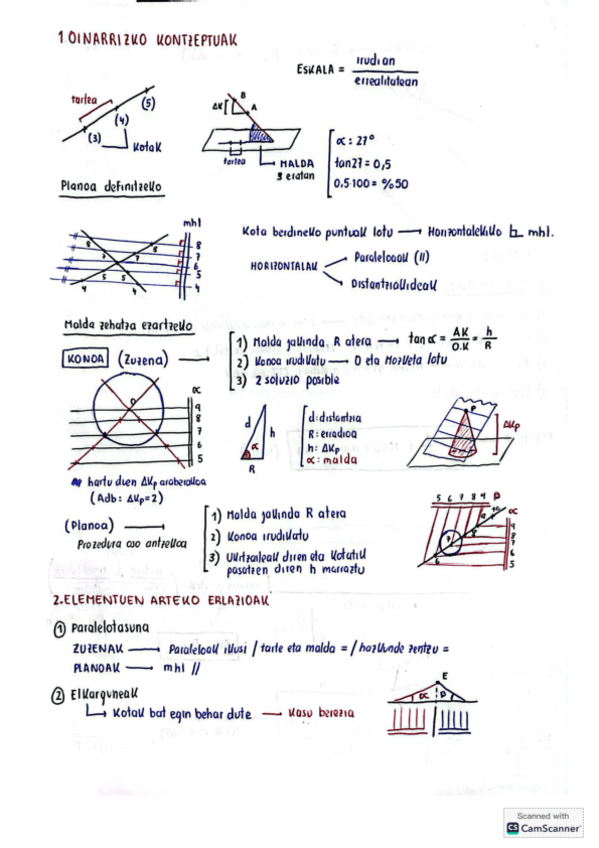 1. OINARRIZKO KONTZEPTUAK
ESKALA = irudian / errealitatean
tartea
(3) (4) (5)
Kotak
ΔK
B
A
tartea
MALDA
3 eratan
α: 27°
tan27 = 0,5
0,5·100 = %50
Planoa definitzeko
mhl
8
7
6
5
4
8 8
7 7
5 5
4 4
Kota berdineko puntuak lotu → Horizontalekiko ⊥ mhl.
HORIZONTALAK
Paraleloak (//)
Distantziakideak
Malda zehatza ezartzeko
KONOA (Zuzena)
1) Malda jakinda, R atera → tan α = ΔK / O.K = h / R
2) Konoa irudikatu → O eta Mozketa lotu
3) 2 soluzio posible
α
9
8
7
6
5
O
d
h
α
R
d: distantzia
R: erradioa
h: ΔKp
α: malda
P
ΔKp
hartu dien ΔKp araberakoa
(Adb: ΔKp=2)
(Planoa)
Prozedura oso antzekoa
1) Malda jakinda R atera
2) Konoa irudikatu
3) Ukitzaileak diren eta Kotatik
pasatzen diren h marraztu
5 6 7 8 9 β
α
9
8
7
6
5
2. ELEMENTUEN ARTEKO ERLAZIOAK
① Paralelotasuna
ZUZENAK → Paraleloak ikusi / tarte eta malda = / hazkunde zentzu =
PLANOAK → mhl //
② Elkarguneak
Kotak bat egin behar dute → Kasu berezia
E
α β
Scanned with
CS CamScanner